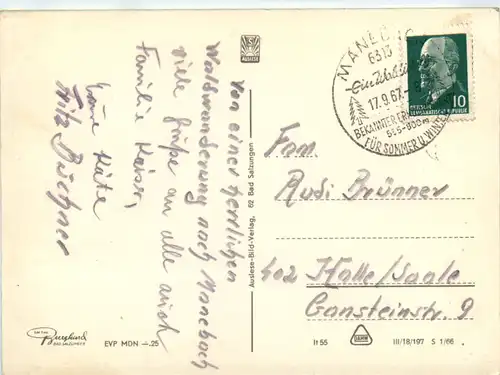 Von einer herrlichen
Waldwanderung nach Manebach
viele Grüße an alle auch
Familie Kaiser,
Eure Käte
Fritz Büchner
AUSLESE
Auslese-Bild-Verlag, 62 Bad Salzungen
Burghard
BAD SALZUNGEN
EVP MDN —.25
MANEB
6313
17.9.67
BEKANNTER
500-800 m
FÜR SOMMER U. WINTER
DEUTSCHE
DEMOKRATISCHE REPUBLIK 10
Fam.
Rudi Brünner
402 Halle/Saale
Gansteinstr. 9
It 55
III/18/197 S 1/66